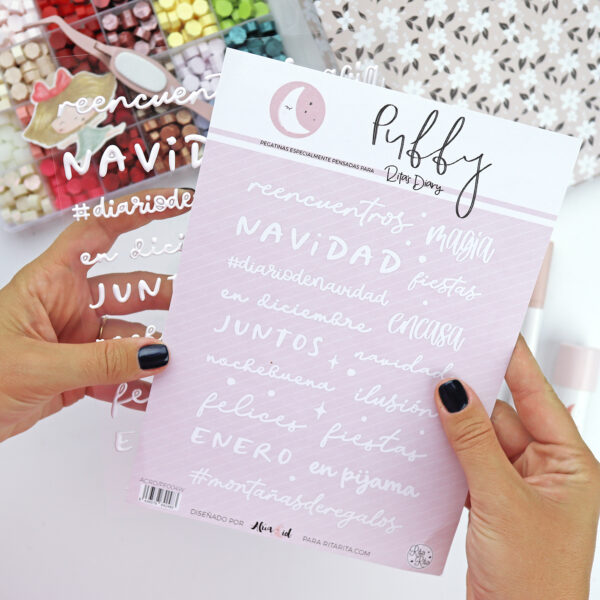 reencuentros
NAViDAD
#diariodenavidad
en diciembre
JUNTOS
Puffy
PEGATINAS ESPECIALMENTE PENSADAS PARA
Ritas Diary
reencuentros magia
NAViDAD fiestas
#diariodenavidad
en diciembre encasa
JUNTOS navidad
nochebuena ilusión
felices fiestas
ENERO en pijama
#montañasderegalos
DISEÑADO POR PARA RITARITA.COM